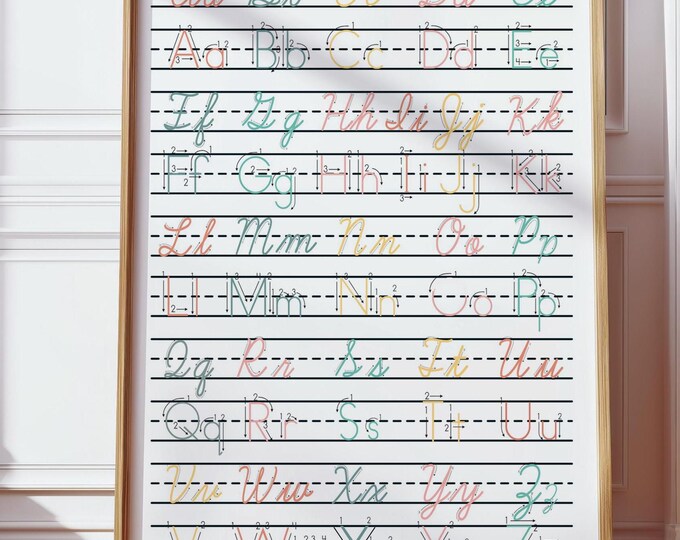 Aa Bb Cc Dd Ee
Ff Gg Hh Ii Jj Kk
Ff Gg Hh Ii Jj Kk
Ll Mm Nn Oo Pp
Ll Mm Nn Oo Pp
Qq Rr Ss Tt Uu
Qq Rr Ss Tt Uu
Vv Ww Xx Yy Zz
V W X Y Z